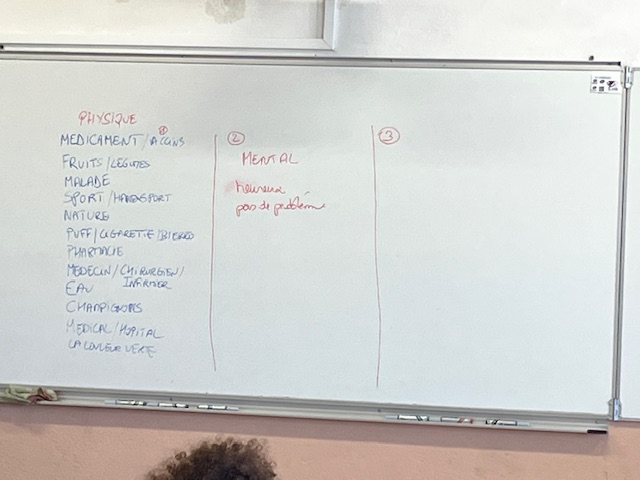 PHYSIQUE
①
MEDICAMENT/
FRUITS/LEGUMES
MALADE
SPORT/HANDSPORT
NATURE
PUFF/CIGARETTE/
PHARMACIE
MEDECIN/CHIRURGIEN/
INFIRMIER
EAU
CHAMPIGNONS
MEDICAL/HOPITAL
LA COULEUR VERTE
②
MENTAL
heureux
pas de problème
③